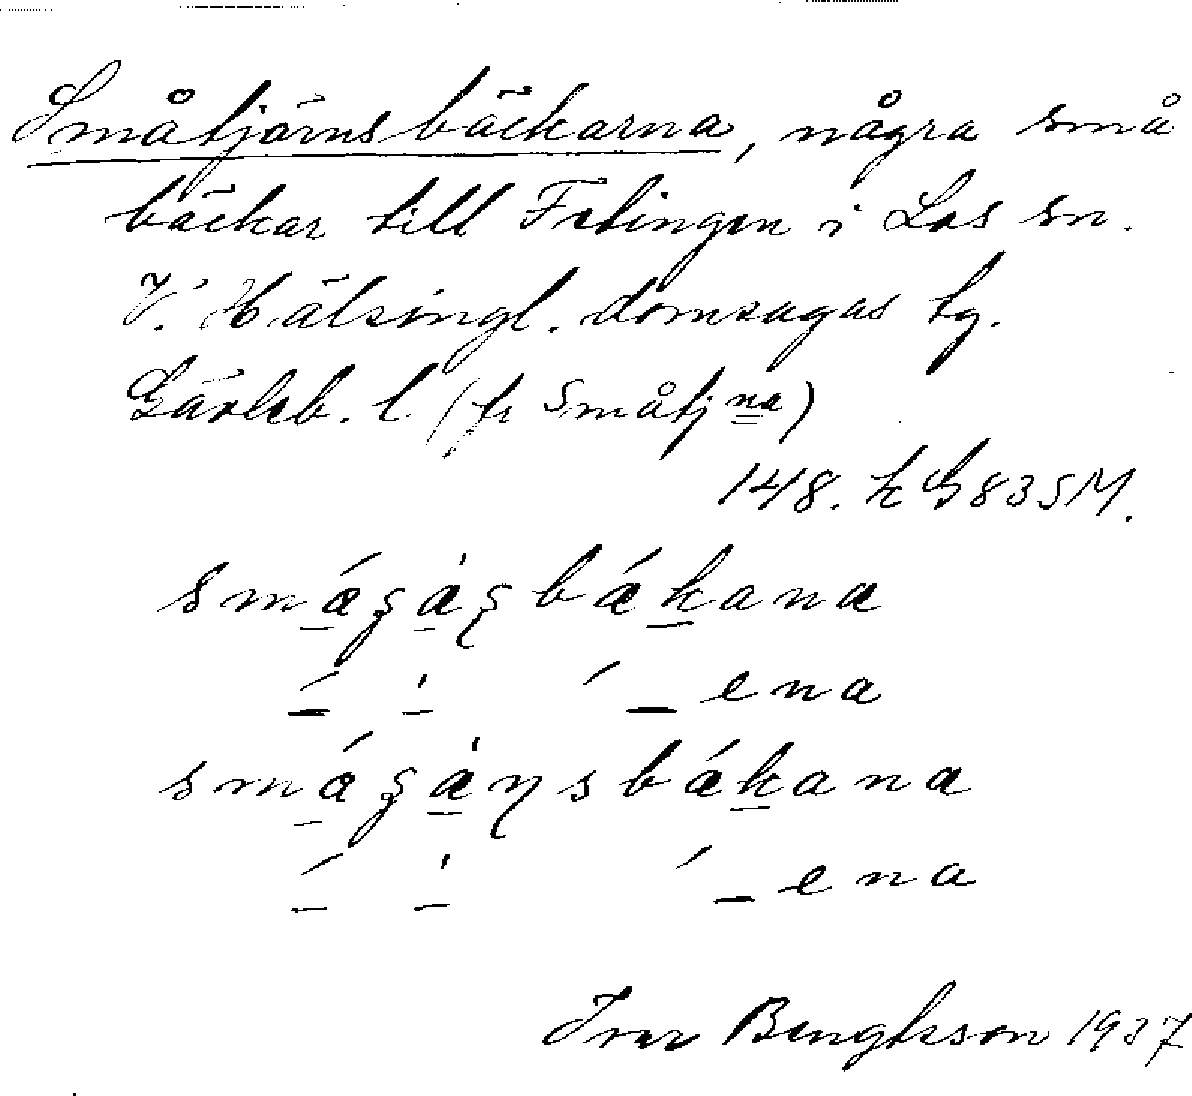 Småtjärnsbäckarna, några små
bäckar till Fåtingen i Los sn.
V. Hälsingl. domsagas tg.
Gävleb. l. (fr Småtjna)
148. k G 83 SM.
bákana
ena
bákana
ena
Ivar Bengtsson 1937